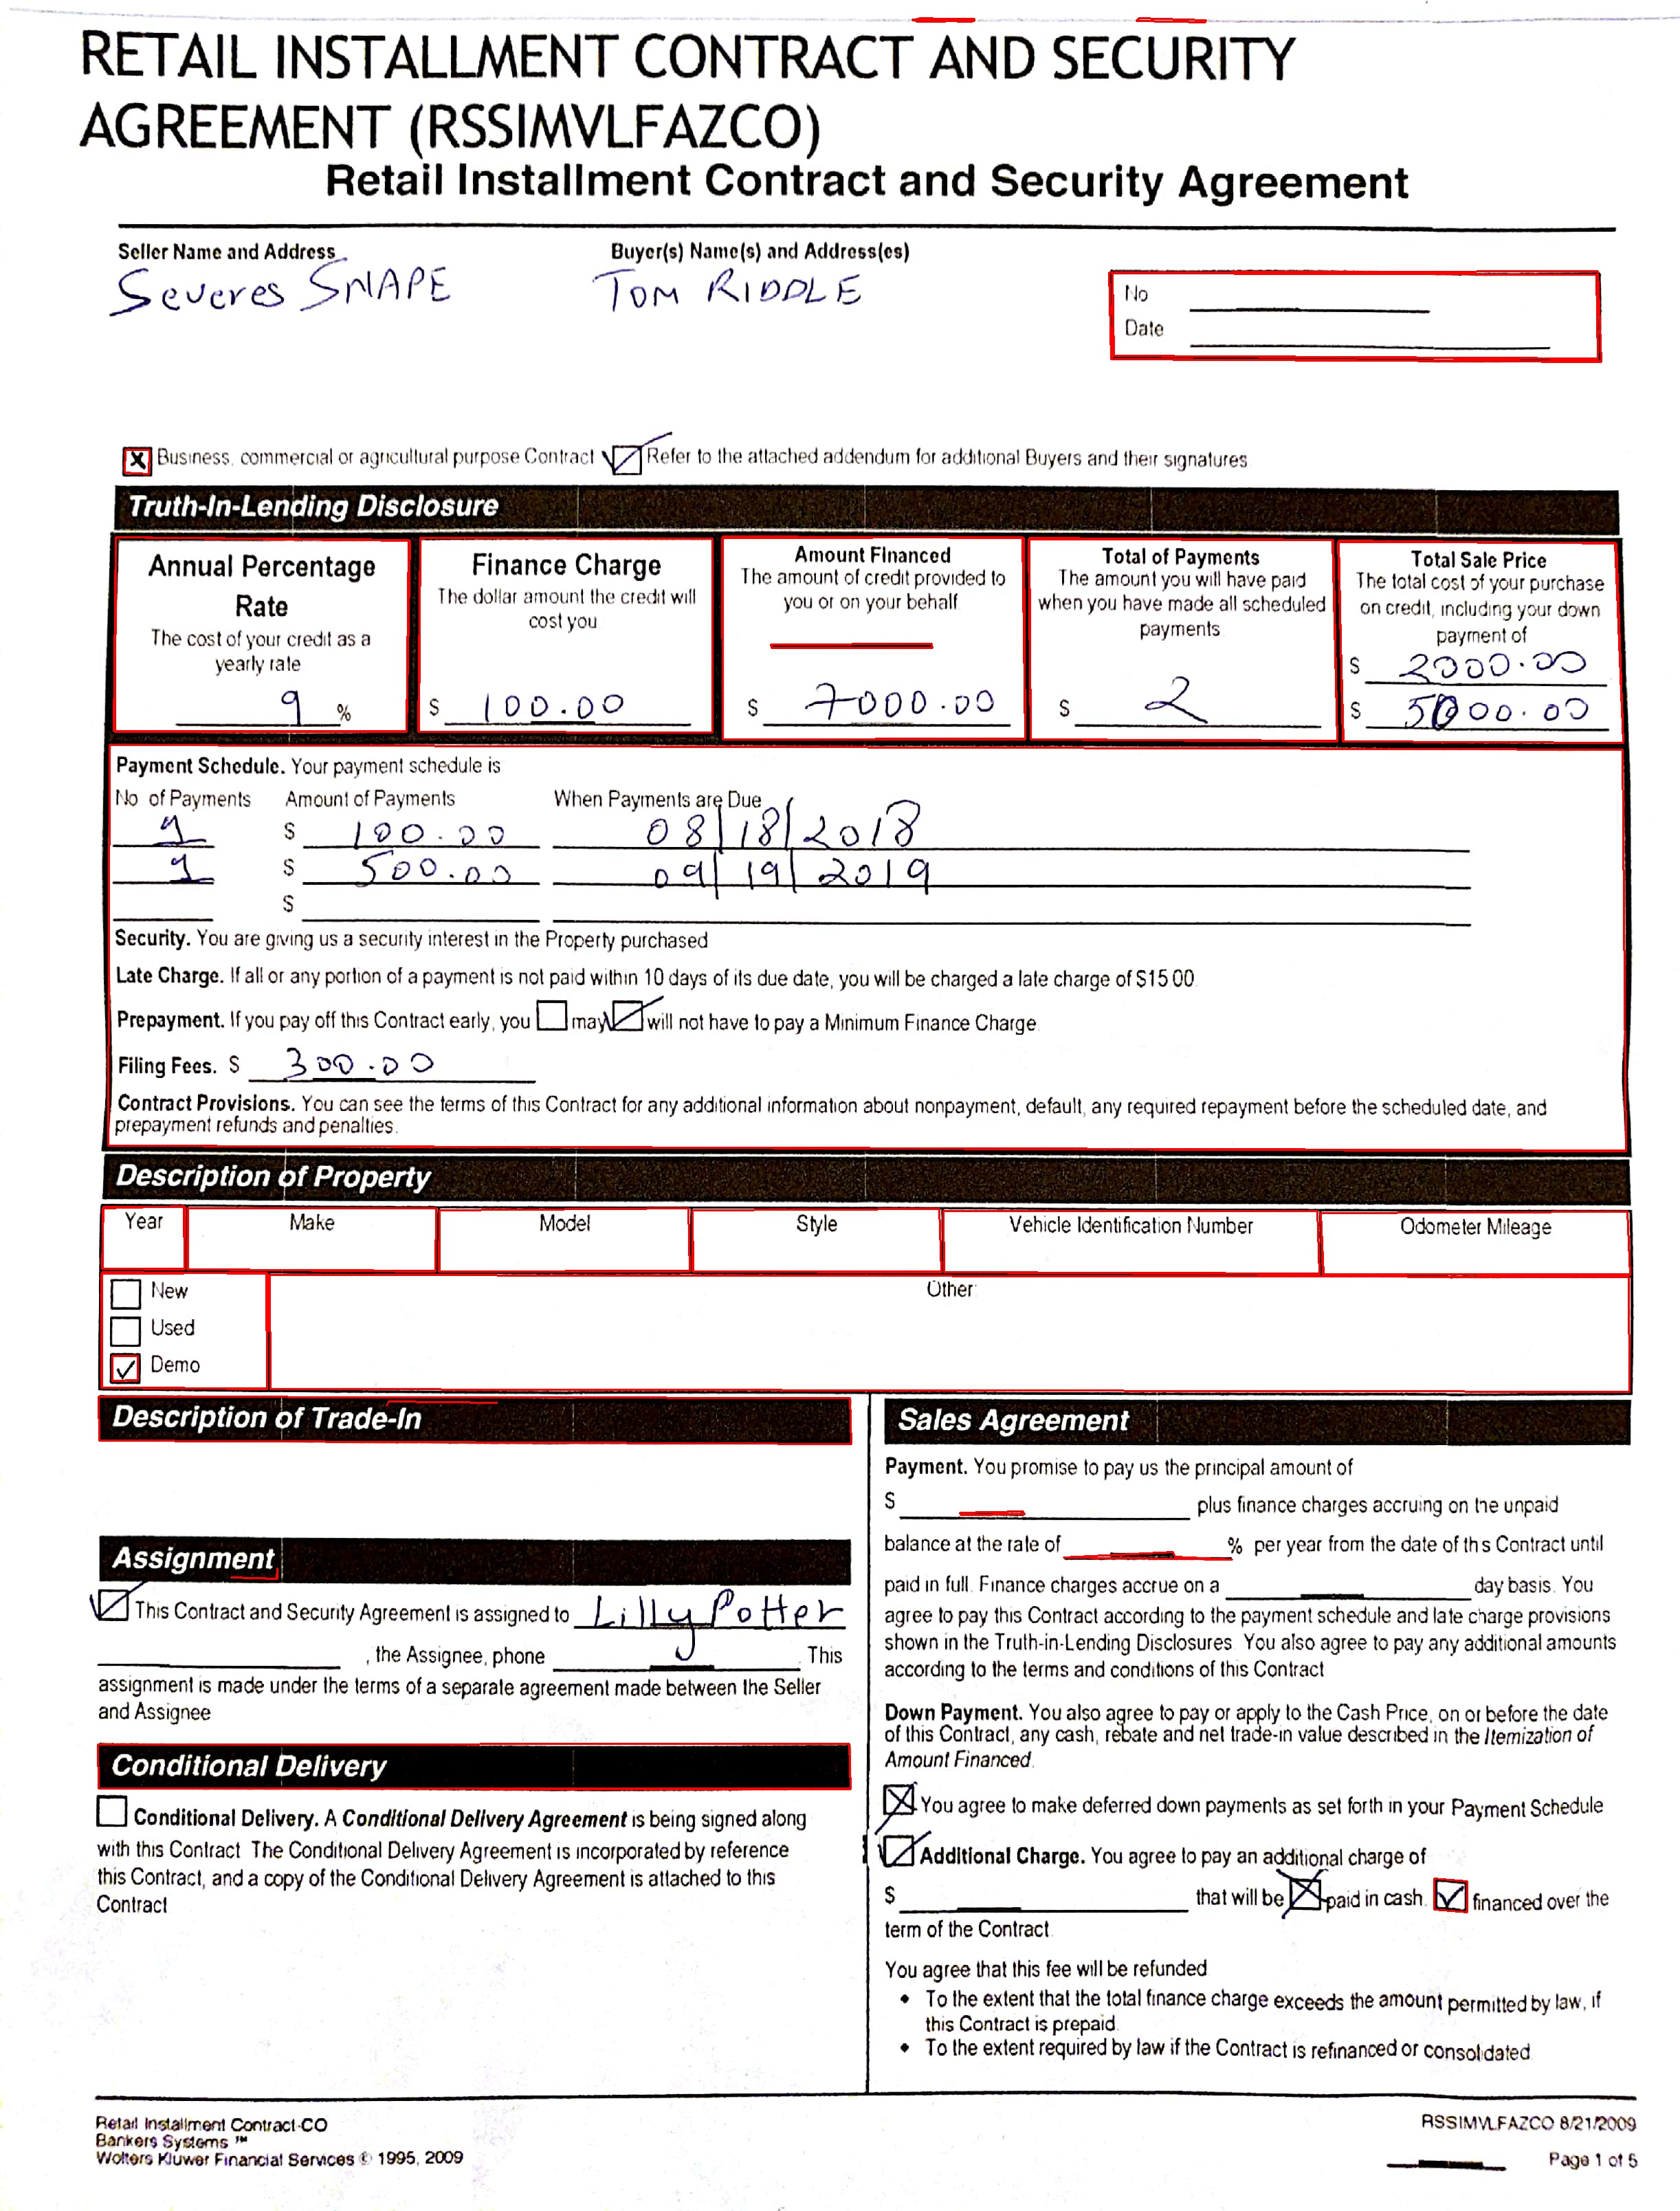 RETAIL INSTALLMENT CONTRACT AND SECURITY
AGREEMENT (RSSIMVLFAZCO)
Retail Installment Contract and Security Agreement
Seller Name and Address
Severes SNAPE
Buyer(s) Name(s) and Address(es)
TOM RIDDLE
No
Date
Business, commercial or agricultural purpose Contract Refer to the attached addendum for additional Buyers and their signatures
Truth-In-Lending Disclosure
Annual Percentage
Rate
The cost of your credit as a
yearly rate
9 %
Finance Charge
The dollar amount the credit will
cost you
$ 100.00
Amount Financed
The amount of credit provided to
you or on your behalf
$ 7000.00
Total of Payments
The amount you will have paid
when you have made all scheduled
payments
$ 2
Total Sale Price
The total cost of your purchase
on credit, including your down
payment of
$ 2000.00
$ 5000.00
Payment Schedule. Your payment schedule is
No of Payments Amount of Payments When Payments are Due
1 $ 100.00 08/18/2018
1 $ 500.00 09/19/2019
$
Security. You are giving us a security interest in the Property purchased
Late Charge. If all or any portion of a payment is not paid within 10 days of its due date, you will be charged a late charge of $15 00.
Prepayment. If you pay off this Contract early, you may will not have to pay a Minimum Finance Charge.
Filing Fees. $ 300.00
Contract Provisions. You can see the terms of this Contract for any additional information about nonpayment, default, any required repayment before the scheduled date, and
prepayment refunds and penalties.
Description of Property
Year Make Model Style Vehicle Identification Number Odometer Mileage
New
Used
Demo
Other
Description of Trade-In
Assignment
This Contract and Security Agreement is assigned to Lilly Potter
, the Assignee, phone . This
assignment is made under the terms of a separate agreement made between the Seller
and Assignee
Conditional Delivery
Conditional Delivery. A Conditional Delivery Agreement is being signed along
with this Contract The Conditional Delivery Agreement is incorporated by reference
this Contract, and a copy of the Conditional Delivery Agreement is attached to this
Contract
Sales Agreement
Payment. You promise to pay us the principal amount of
$ plus finance charges accruing on the unpaid
balance at the rate of % per year from the date of ths Contract until
paid in full. Finance charges accrue on a day basis. You
agree to pay this Contract according to the payment schedule and late charge provisions
shown in the Truth-in-Lending Disclosures. You also agree to pay any additional amounts
according to the terms and conditions of this Contract
Down Payment. You also agree to pay or apply to the Cash Price, on or before the date
of this Contract, any cash, rebate and net trade-in value described in the Itemization of
Amount Financed.
You agree to make deferred down payments as set forth in your Payment Schedule
Additional Charge. You agree to pay an additional charge of
$ that will be paid in cash. financed over the
term of the Contract.
You agree that this fee will be refunded
• To the extent that the total finance charge exceeds the amount permitted by law, if
this Contract is prepaid.
• To the extent required by law if the Contract is refinanced or consolidated
Retail Installment Contract-CO
Bankers Systems ™
Wolters Kluwer Financial Services © 1995, 2009
RSSIMVLFAZCO 8/21/2009
Page 1 of 5